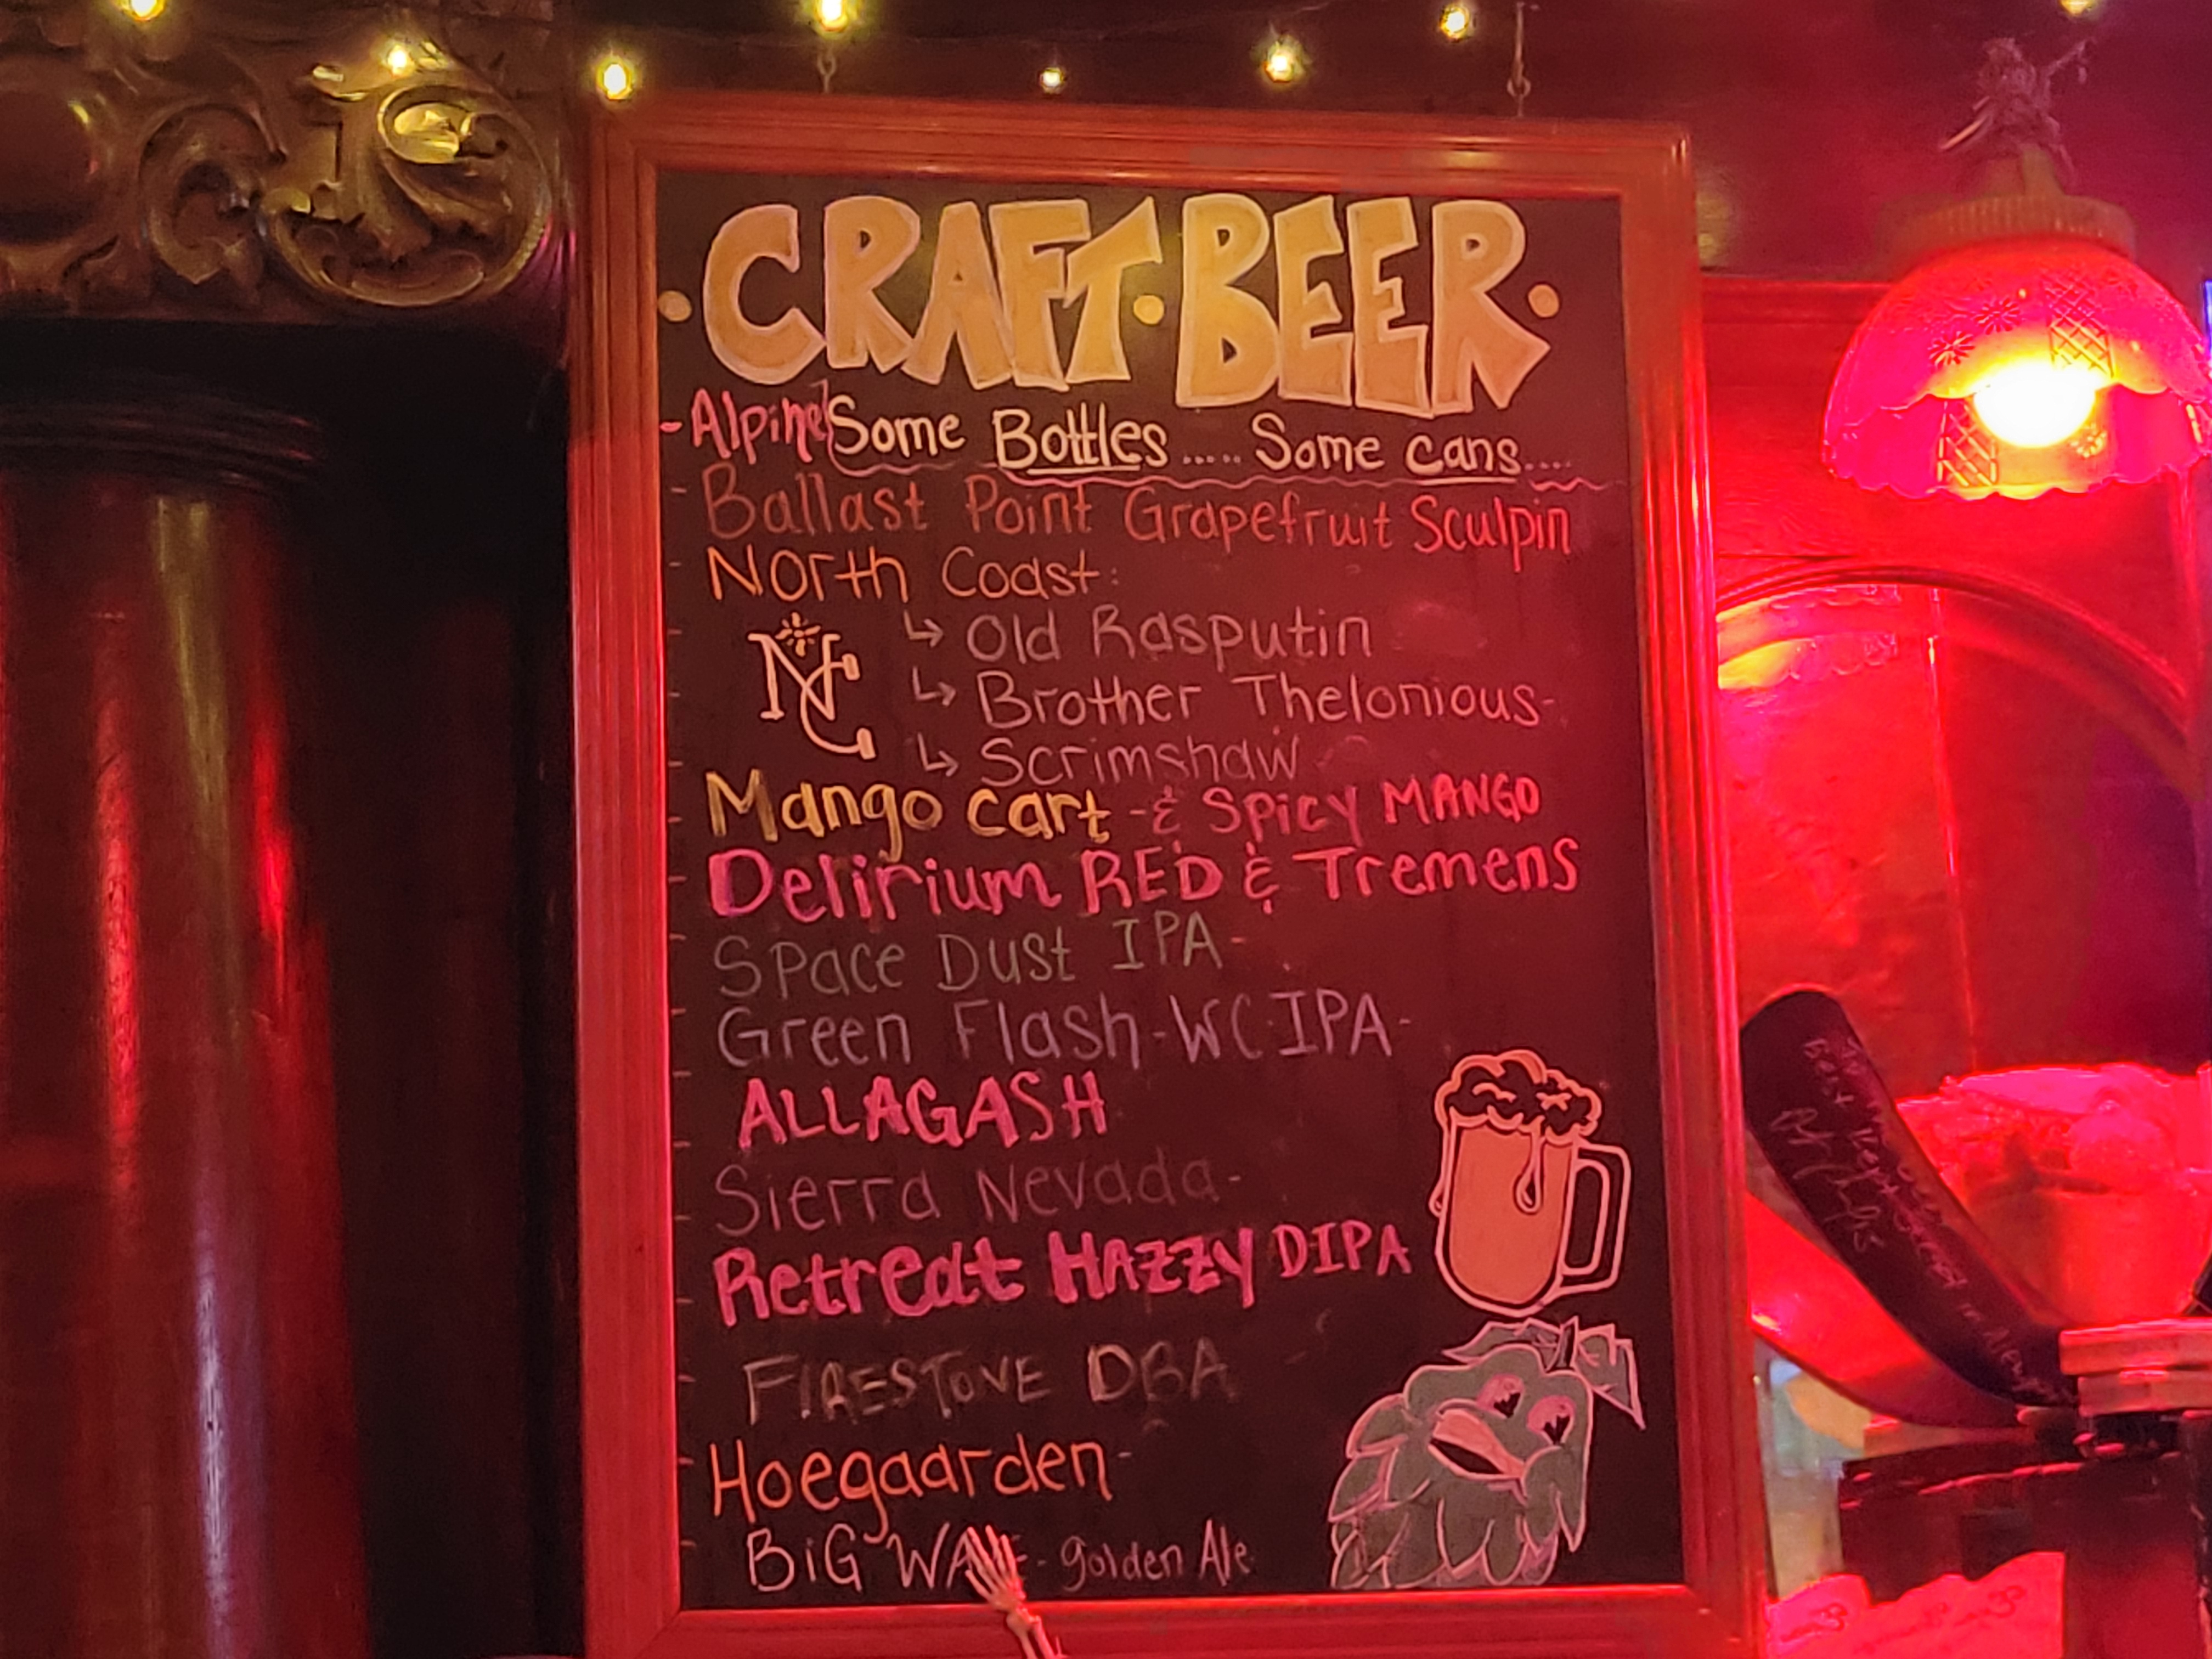 CRAFT·BEER
-Alpine Some Bottles ..... Some cans....
- Ballast Point Grapefruit Sculpin
- North Coast:
NC
↳ Old Rasputin
↳ Brother Thelonious-
↳ Scrimshaw
- Mango cart -& Spicy MANGO
- Delirium RED & Tremens
- Space Dust IPA-
- Green Flash-WC IPA-
- ALLAGASH
- Sierra Nevada-
- Retreat HAZZY DIPA
- FIRESTONE DBA
- Hoegaarden-
- BiG WAVE - golden Ale